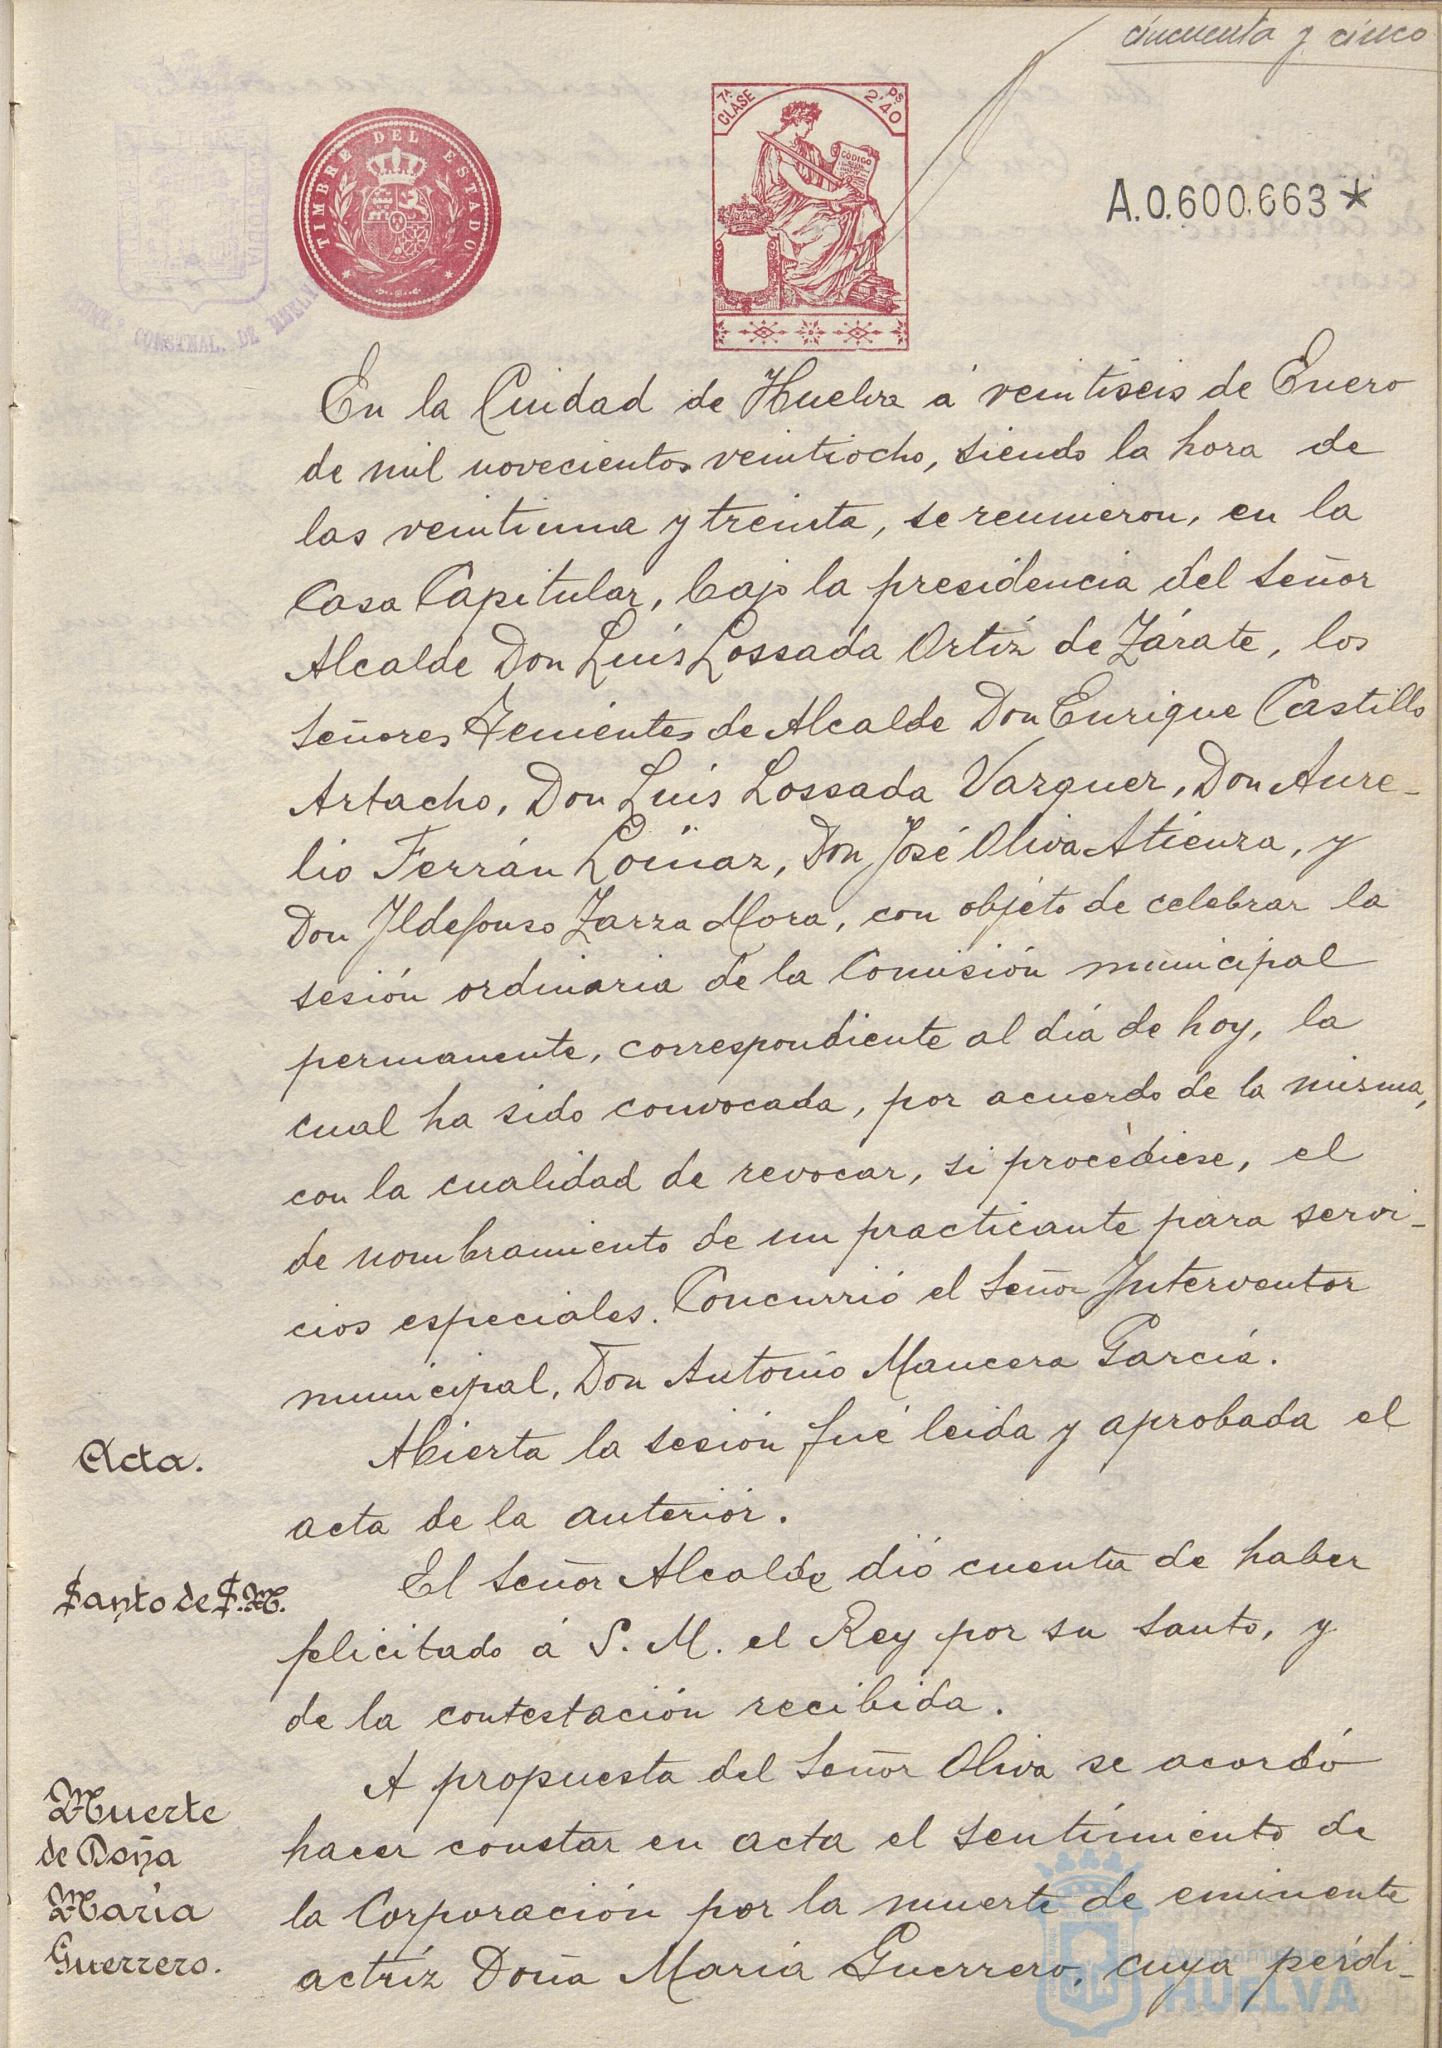 cincuenta y cinco
TIMBRE DEL ESTADO
7ª CLASE
2'40 Ps
CODIGO
A.0.600.663*
CONSTNAL. DE HUELVA
En la Ciudad de Huelva á veintiseis de Enero
de mil novecientos veintiocho, siendo la hora de
las veintiuna y treinta, se reunieron, en la
Casa Capitular, bajo la presidencia del Señor
Alcalde Don Luis Lossada Ortíz de Zárate, los
Señores Tenientes de Alcalde Don Enrique Castillo
Artacho, Don Luis Lossada Vazquez, Don Aure-
lio Ferrán Loinaz, Don José Oliva Atienza, y
Don Ildefonso Zarza Mora, con objeto de celebrar la
sesión ordinaria de la Comisión municipal
permanente, correspondiente al día de hoy, la
cual ha sido convocada, por acuerdo de la misma,
con la cualidad de revocar, si procediese, el
de nombramiento de un practicante para servi-
cios especiales. Concurrió el Señor Interventor
municipal, Don Antonio Mancera García.
Acta.
Abierta la sesión fué leida y aprobada el
acta de la anterior.
Santo de S.M.
El Señor Alcalde dió cuenta de haber
felicitado á S. M. el Rey por su santo, y
de la contestación recibida.
Muerte
de Doña
María
Guerrero.
A propuesta del Señor Oliva se acordó
hacer constar en acta el sentimiento de
la Corporación por la muerte de eminente
actríz Doña María Guerrero, cuya pérdi-
Ayuntamiento de
HUELVA